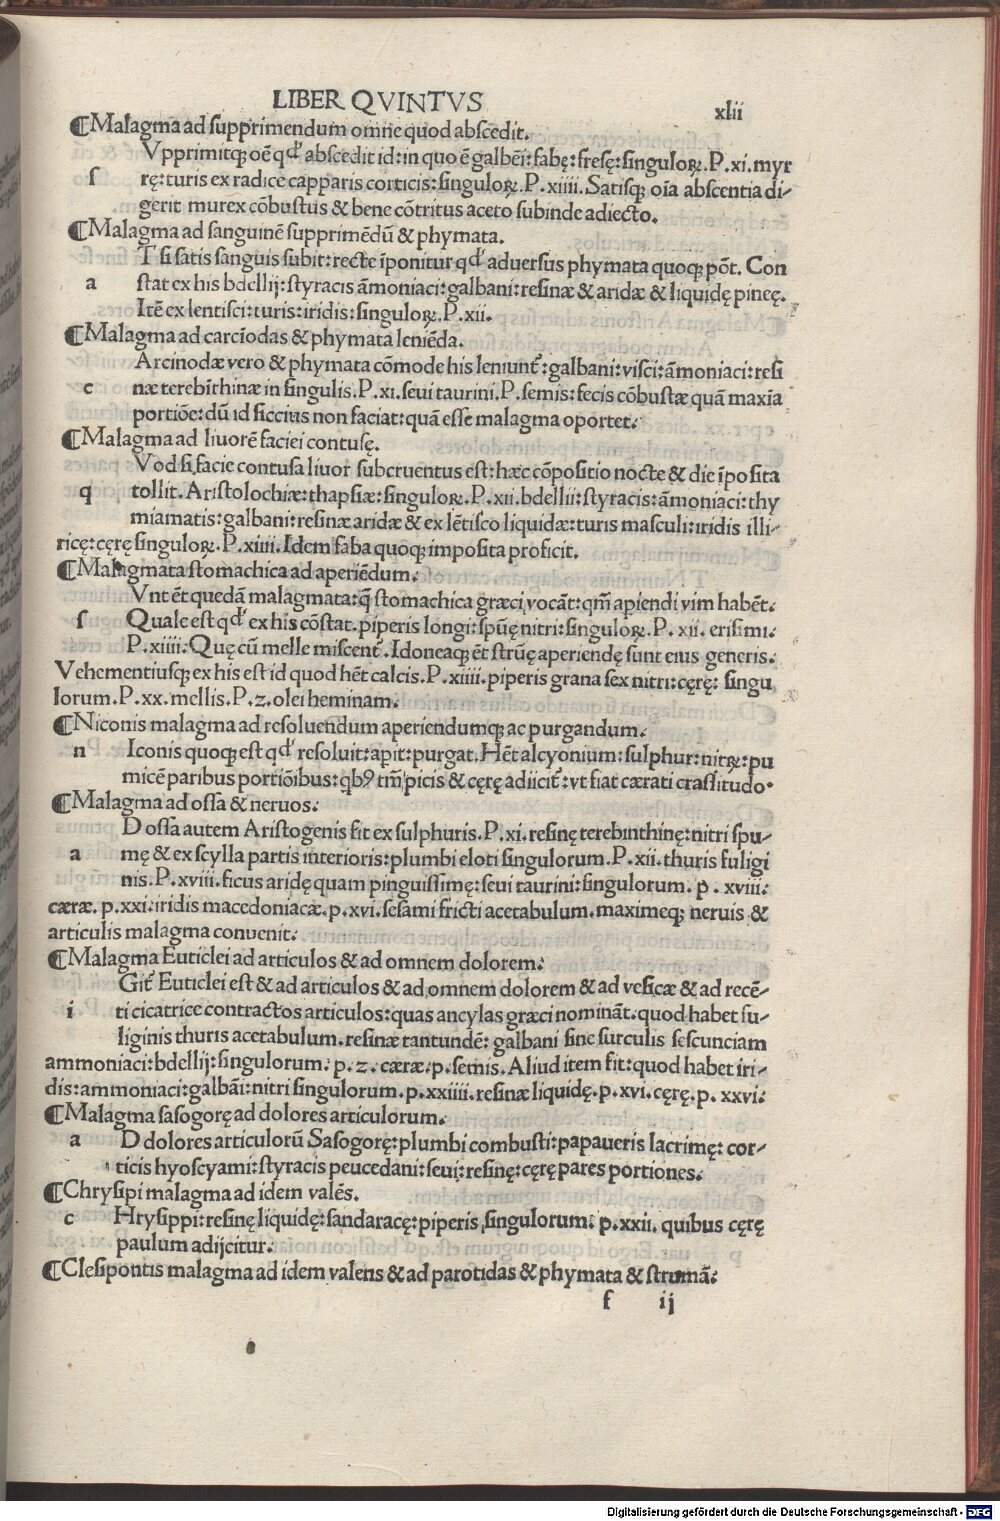 LIBER QVINTVS
xlii
¶Malagma ad supprimendum omne quod abscedit.
Vpprimitqꝫ oẽ qď abscedit id: in quo ẽ galbẽi: fabę: fresę: singuloꝝ. P. xi. myr
s rę: turis ex radice capparis corticis: singuloꝝ. P. xiiii. Satisqꝫ oĩa abscentia di-
gerit murex cõbustus & bene cõtritus aceto subinde adiecto.
¶Malagma ad sanguinẽ supprimẽdũ & phymata.
T si satis sanguis subit: recte ĩponitur qď aduersus phymata quoqꝫ põt. Con
a stat ex his bdellij: styracis ãmoniaci: galbani: resinæ & aridæ & liquidę pineę.
Itẽ ex lentisci: turis: iridis: singuloꝝ. P. xii.
¶Malagma ad carcĩodas & phymata leniẽda.
Arcinodæ vero & phymata cõmode his leniunť: galbani: visci: ãmoniaci: resi
c næ terebĩthinæ in singulis. P. xi. seui taurini. P. semis: fecis cõbustæ quã maxia
portiõe: dũ id siccius non faciat: quã esse malagma oportet:
¶Malagma ad liuorẽ faciei contusę.
Vod si facie contusa liuor subcruentus est: hæc cõpositio nocte & die ĩposita
q tollit. Aristolochiæ: thapsiæ: singuloꝝ. P. xii. bdellii: styracis: ãmoniaci: thy
miamatis: galbani: resinæ aridæ & ex lẽtisco liquidæ: turis masculi: iridis illi-
ricę: cęrę singuloꝝ. P. xiiii. Idem faba quoqꝫ imposita proficit.
¶Malagmata stomachica ad aperiẽdum:
Vnt ẽt quedã malagmata: q̃ stomachica græci vocãt: qm̃ apiendi vim habẽt:
s Quale est qď ex his cõstat. piperis longi: spũę nitri: singuloꝝ. P. xii. erisimi:
P. xiiii: Quę cũ melle miscenť. Idoneaqꝫ ẽt strũę aperiendę sunt eius generis:
Vehementiusqꝫ ex his est id quod hẽt calcis. P. xiiii. piperis grana sex nitri: cęrę: singu
lorum. P. xx. mellis. P. z. olei heminam.
¶Niconis malagma ad resoluendum aperiendumqꝫ ac purgandum.
n Iconis quoqꝫ est qď resoluit: apit: purgat. Hẽt alcyonium: sulphur: nitꝝ: pu
micẽ paribus portiõibus: qbꝰ tm̃ picis & cęrę adiiciť: vt fiat cærati crassitudo.
¶Malagma ad ossa & neruos:
D ossa autem Aristogenis fit ex sulphuris. P. xi. resinę terebinthinę: nitri spu-
a mę & ex scylla partis interioris: plumbi eloti singulorum. P. xii. thuris fuligi
nis. P. xviii. ficus aridę quam pinguissimę: seui taurini: singulorum. p. xviii:
cæræ. p. xxi: iridis macedoniacæ. p. xvi. sesami fricti acetabulum. maximeqꝫ neruis &
articulis malagma conuenit:
¶Malagma Euticlei ad articulos & ad omnem dolorem:
Giť Euticlei est & ad articulos & ad omnem dolorem & ad vesicæ & ad recẽ-
i ti cicatrice contractos articulos: quas ancylas græci nominãt. quod habet fu-
liginis thuris acetabulum. resinæ tantundẽ: galbani sine surculis sescunciam
ammoniaci: bdellij: singulorum: p. z. cæræ. p. semis. Aliud item fit: quod habet iri-
dis: ammoniaci: galbãi: nitri singulorum. p. xxiiii. resinæ liquidę. p. xvi. cęrę. p. xxvi:
¶Malagma sasogorę ad dolores articulorum.
a D dolores articulorũ Sasogorę: plumbi combusti: papaueris lacrimę: cor-
ticis hyoscyami: styracis peucedani: seui: resinę: cęrę pares portiones:
¶Chrysipi malagma ad idem valẽs.
c Hrysippi: resinę liquidę: sandaracę: piperis singulorum: p. xxii. quibus cęrę
paulum adijcitur:
¶Clesipontis malagma ad idem valens & ad parotidas & phymata & strumã:
f ij
Digitalisierung gefördert durch die Deutsche Forschungsgemeinschaft - DFG